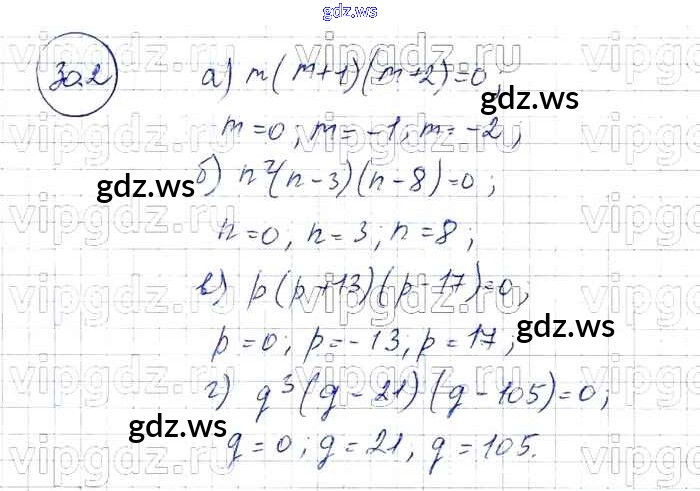 gdz.ws
30.2
а) m(m+1)(m+2)=0;
m=0; m=-1; m=-2;
б) n²(n-3)(n-8)=0;
n=0, n=3; n=8;
в) p(p+13)(p-17)=0,
p=0; p=-13, p=17;
г) q³(q-21)(q-105)=0;
q=0; q=21, q=105.
vipgdz.ru
gdz.ws
gdz.ws
gdz.ws
gdz.ws